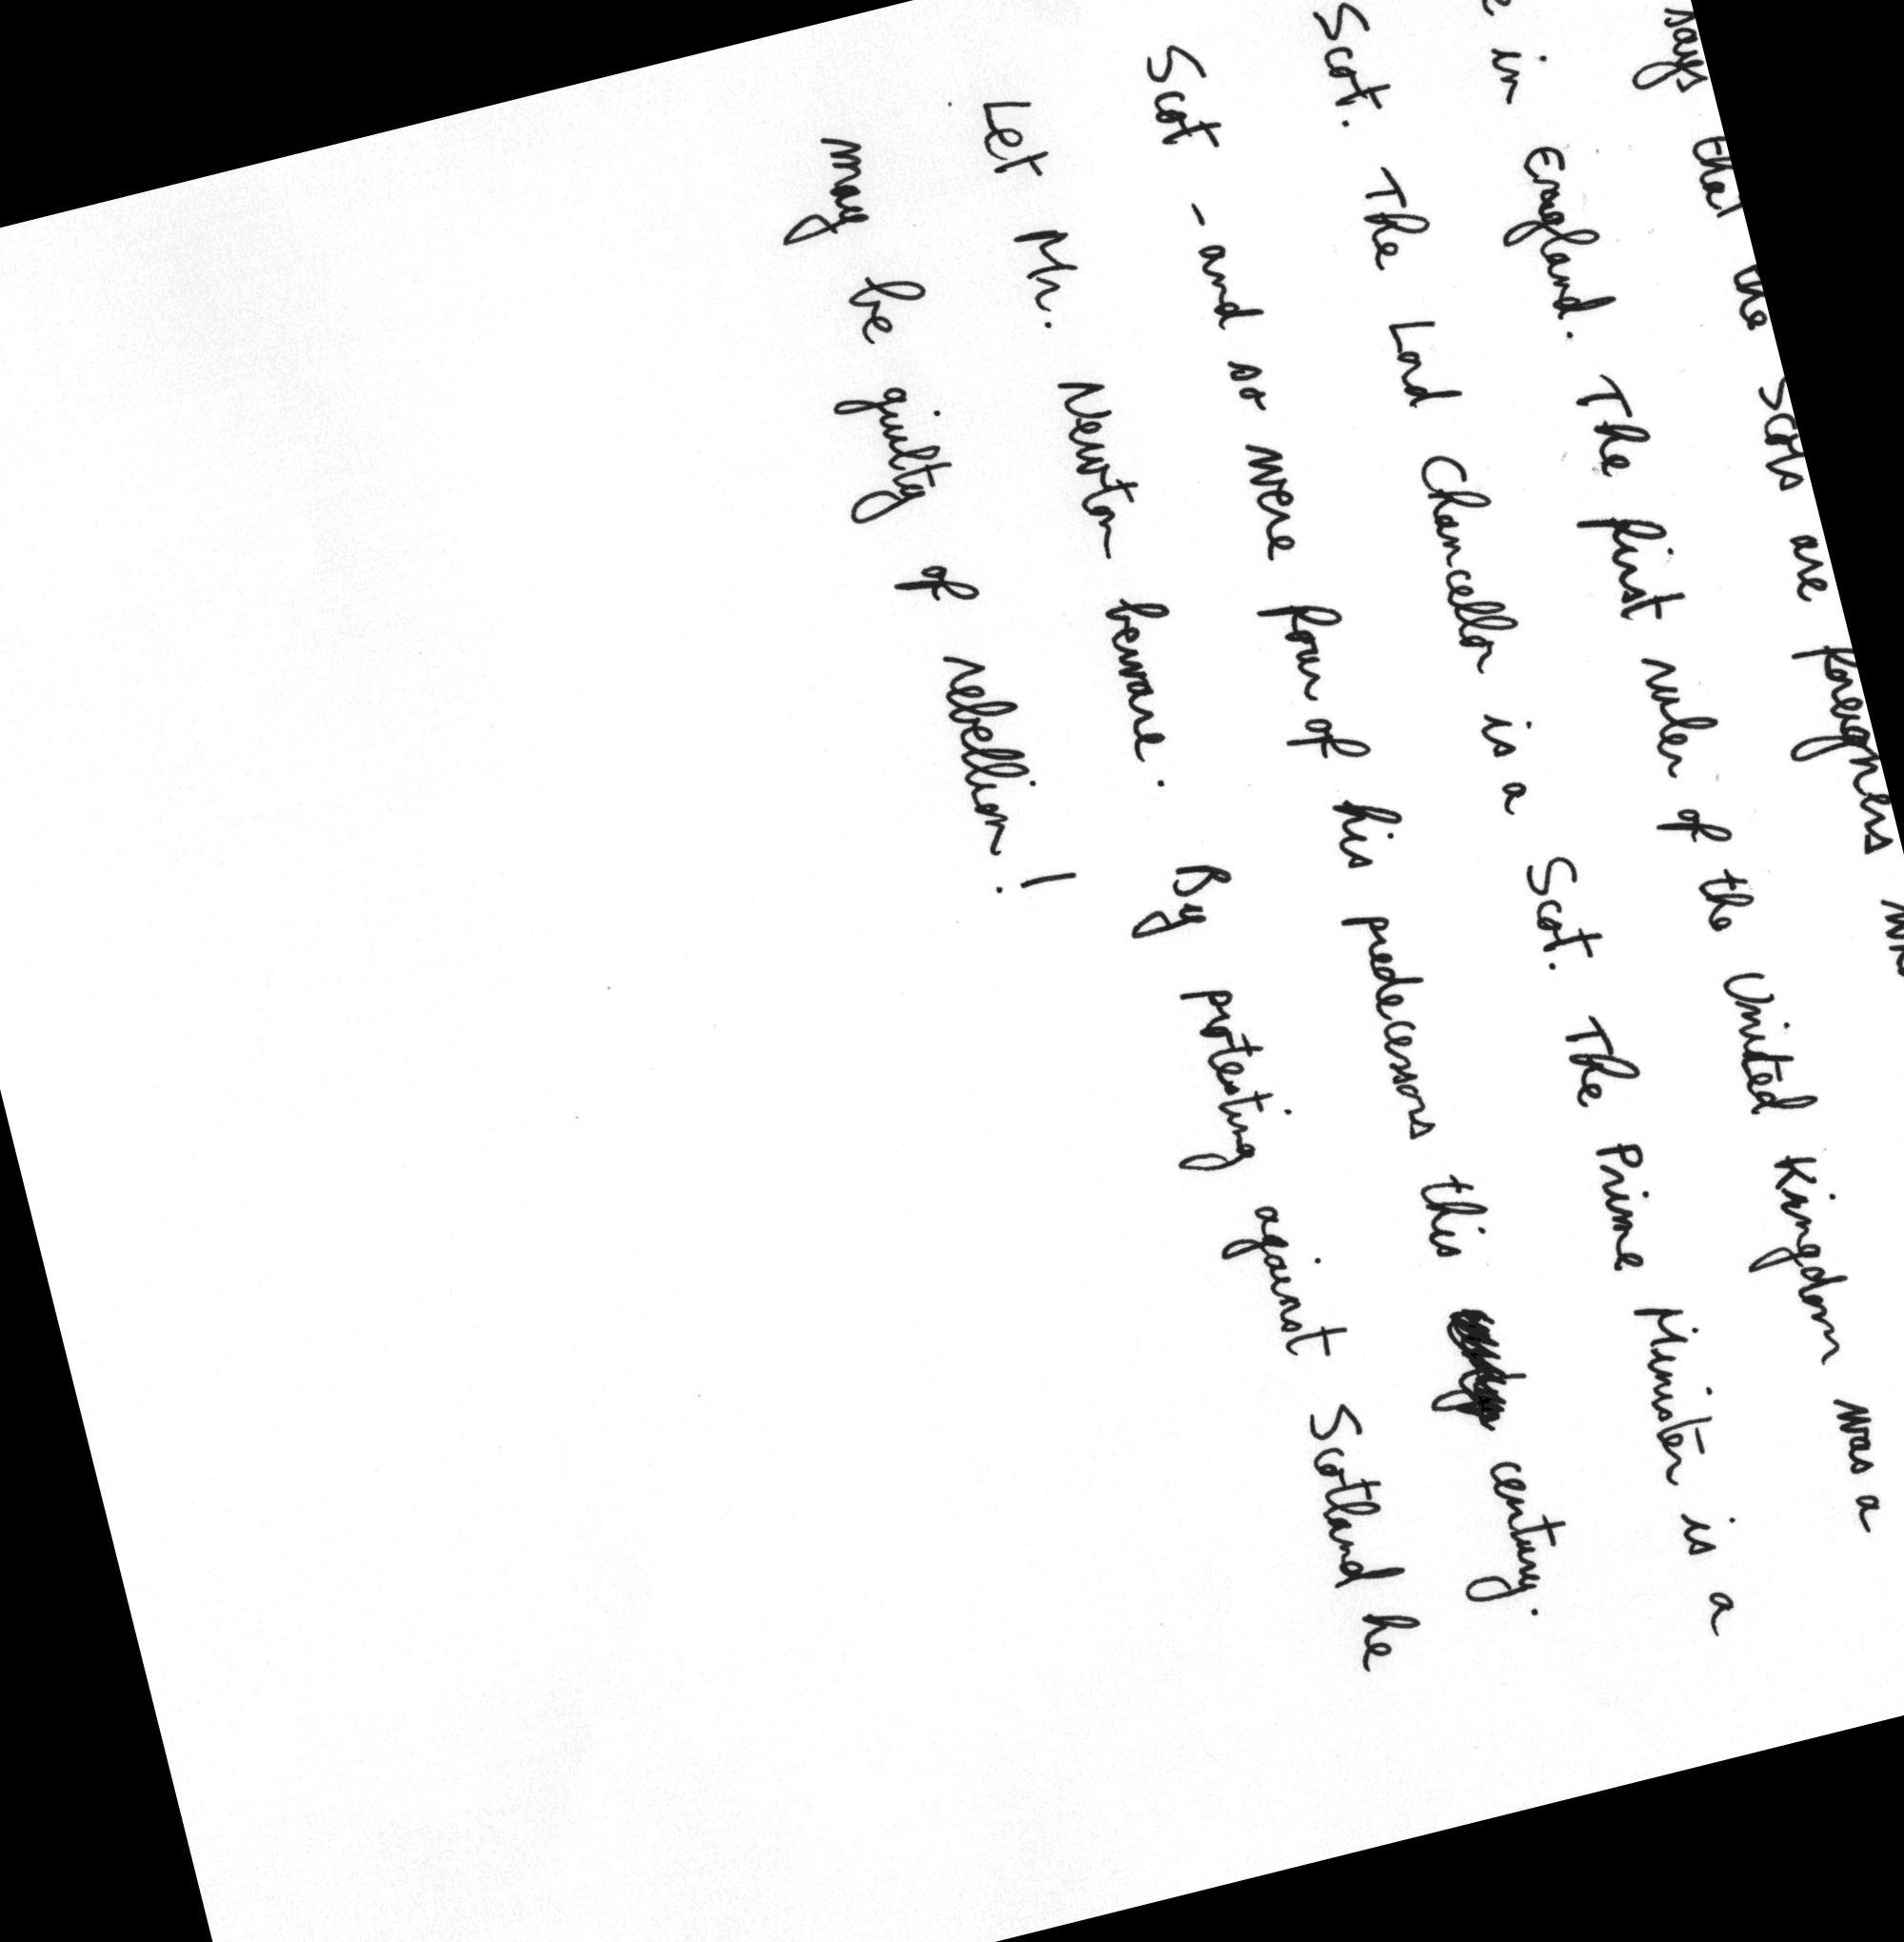 says that the Scots are foreigners
in England. The first ruler of the United Kingdom was a
Scot. The Lord Chancellor is a Scot. The Prime Minister is a
Scot - and so were four of his predecessors this century.
Let Mr. Newton beware. By protesting against Scotland he
may be guilty of rebellion!